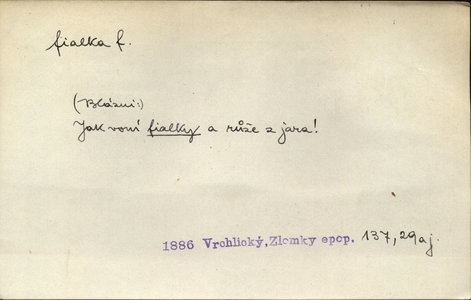 fialka f.
(Blázni:)
Jak voní fialky a růže z jara!
1886 Vrchlický, Zlomky epop. 137, 29 aj.